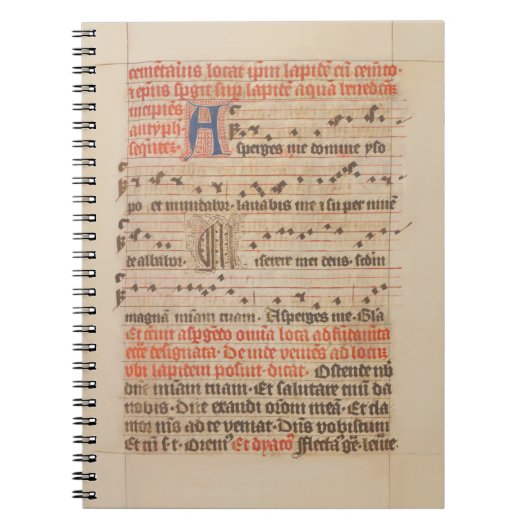 cemētarius locat ipm̄ lapidē cū cemēto·
⁊ ep̄us sp̄git sup̄ lapidē aquā benedictā
incipiēs
antyph̄
sequētē· A
sperges me domine yso
po et mundabor· lauabis me ⁊ super niuē
dealbabor· M iserere mei deus· scdm
magnā miam̄ tuam· Asperges me· Gl̄a
Et eūt aspḡedo omnia loca ad
designata· Deinde veniēs ad locū
vbi lapidem posuit dicat· Ostende nob̄
dn̄e miam̄ tuam· Et salutare tuū da
nobis· Dn̄e exaudi or̄om meā· Et cla
mor m̄s ad te veniat· Dn̄s vobiscum
Et cū s·t· Orem̄ Et dyacō Flectam̄ ge· leuate